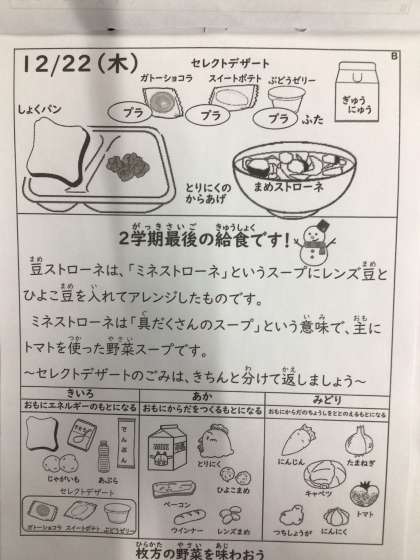 B
12/22(木)
セレクトデザート
ガトーショコラ スイートポテト ぶどうゼリー
プラ プラ プラ ふた
ぎゅうにゅう
しょくパン
とりにくのからあげ
まめストローネ
2学期最後の給食です!
がっきさいご きゅうしょく
豆ストローネは、「ミネストローネ」というスープにレンズ豆と
ひよこ豆を入れてアレンジしたものです。
ミネストローネは「具だくさんのスープ」という意味で、主に
トマトを使った野菜スープです。
~セレクトデザートのごみは、きちんと分けて返しましょう~
きいろ あか みどり
おもにエネルギーのもとになる おもにからだをつくるもとになる おもにからだのちょうしをととのえるもとになる
でんぷん
じゃがいも あぶら
セレクトデザート
ガトーショコラ スイートポテト ぶどうゼリー
とりにく
ひよこまめ
ベーコン
ウインナー レンズまめ
にんじん たまねぎ
キャベツ
トマト
つちしょうが にんにく
ひらかた やさい あじ
枚方の野菜を味わおう